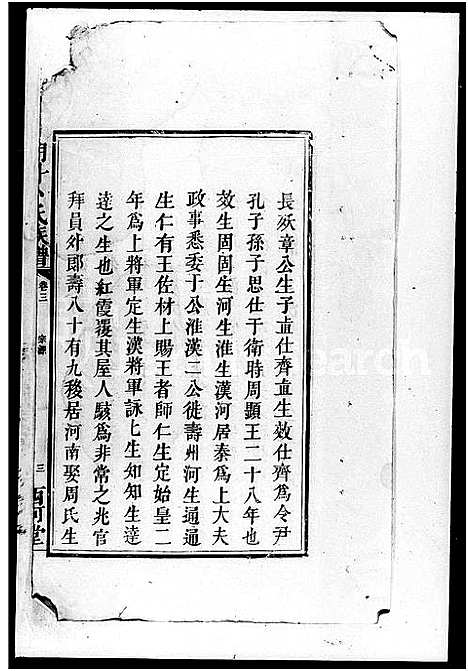 長妖章公生子直仕齊直生效仕齊為令尹
孔子孫子思仕于衛時周顯王二十八年也
效生固固生河生淮生漢河居泰為上大夫
政事悉委于公淮漢二公徙壽州河生通通
生仁有王佐材上賜王者師仁生定始皇二
年為上將軍定生漢將軍詠詠生知知生達
達之生也紅霞覆其屋人駭為非常之兆官
拜員外郎壽八十有九移居河南娶周氏生
氏族譜
卷三
宗源
三
西河堂